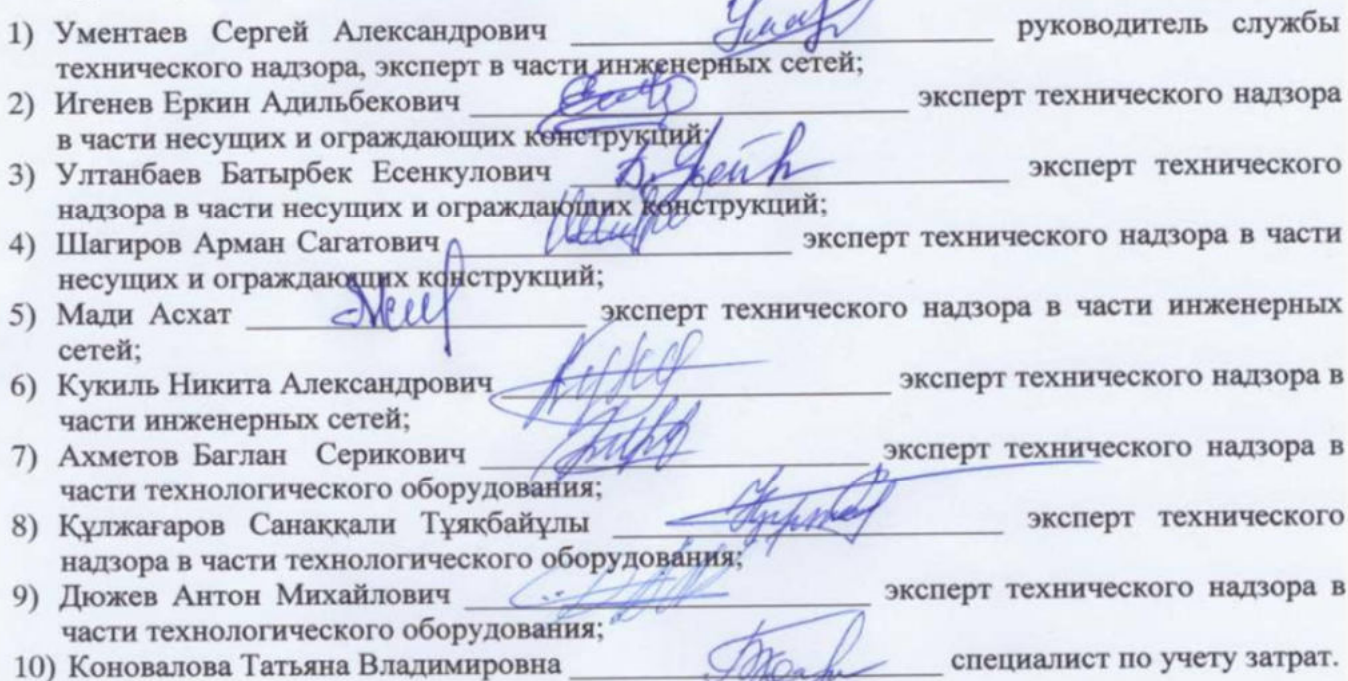 1) Ументаев Сергей Александрович ____________ руководитель службы
технического надзора, эксперт в части инженерных сетей;
2) Игенев Еркин Адильбекович ____________ эксперт технического надзора
в части несущих и ограждающих конструкций;
3) Ултанбаев Батырбек Есенкулович ____________ эксперт технического
надзора в части несущих и ограждающих конструкций;
4) Шагиров Арман Сагатович ____________ эксперт технического надзора в части
несущих и ограждающих конструкций;
5) Мади Асхат ____________ эксперт технического надзора в части инженерных
сетей;
6) Кукиль Никита Александрович ____________ эксперт технического надзора в
части инженерных сетей;
7) Ахметов Баглан Серикович ____________ эксперт технического надзора в
части технологического оборудования;
8) Құлжағаров Санаққали Тұяқбайұлы ____________ эксперт технического
надзора в части технологического оборудования;
9) Дюжев Антон Михайлович ____________ эксперт технического надзора в
части технологического оборудования;
10) Коновалова Татьяна Владимировна ____________ специалист по учету затрат.